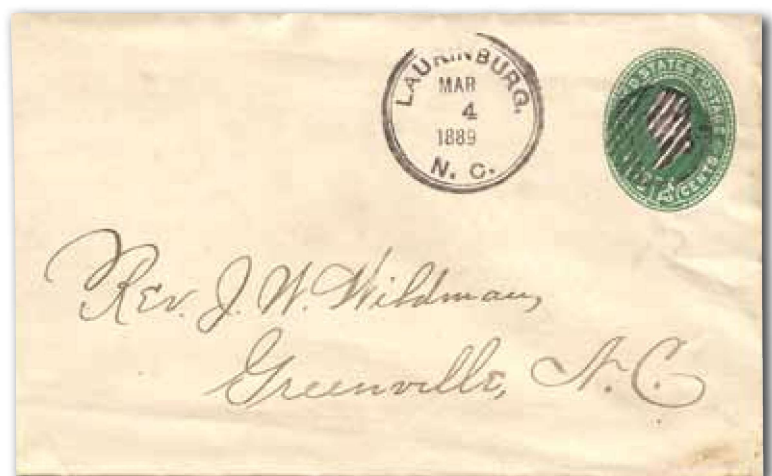 LAURINBURG.
MAR
4
1889
N. C.
STATES POSTAGE
CENTS
Rev. J. W. Wildman,
Greenville, N. C.